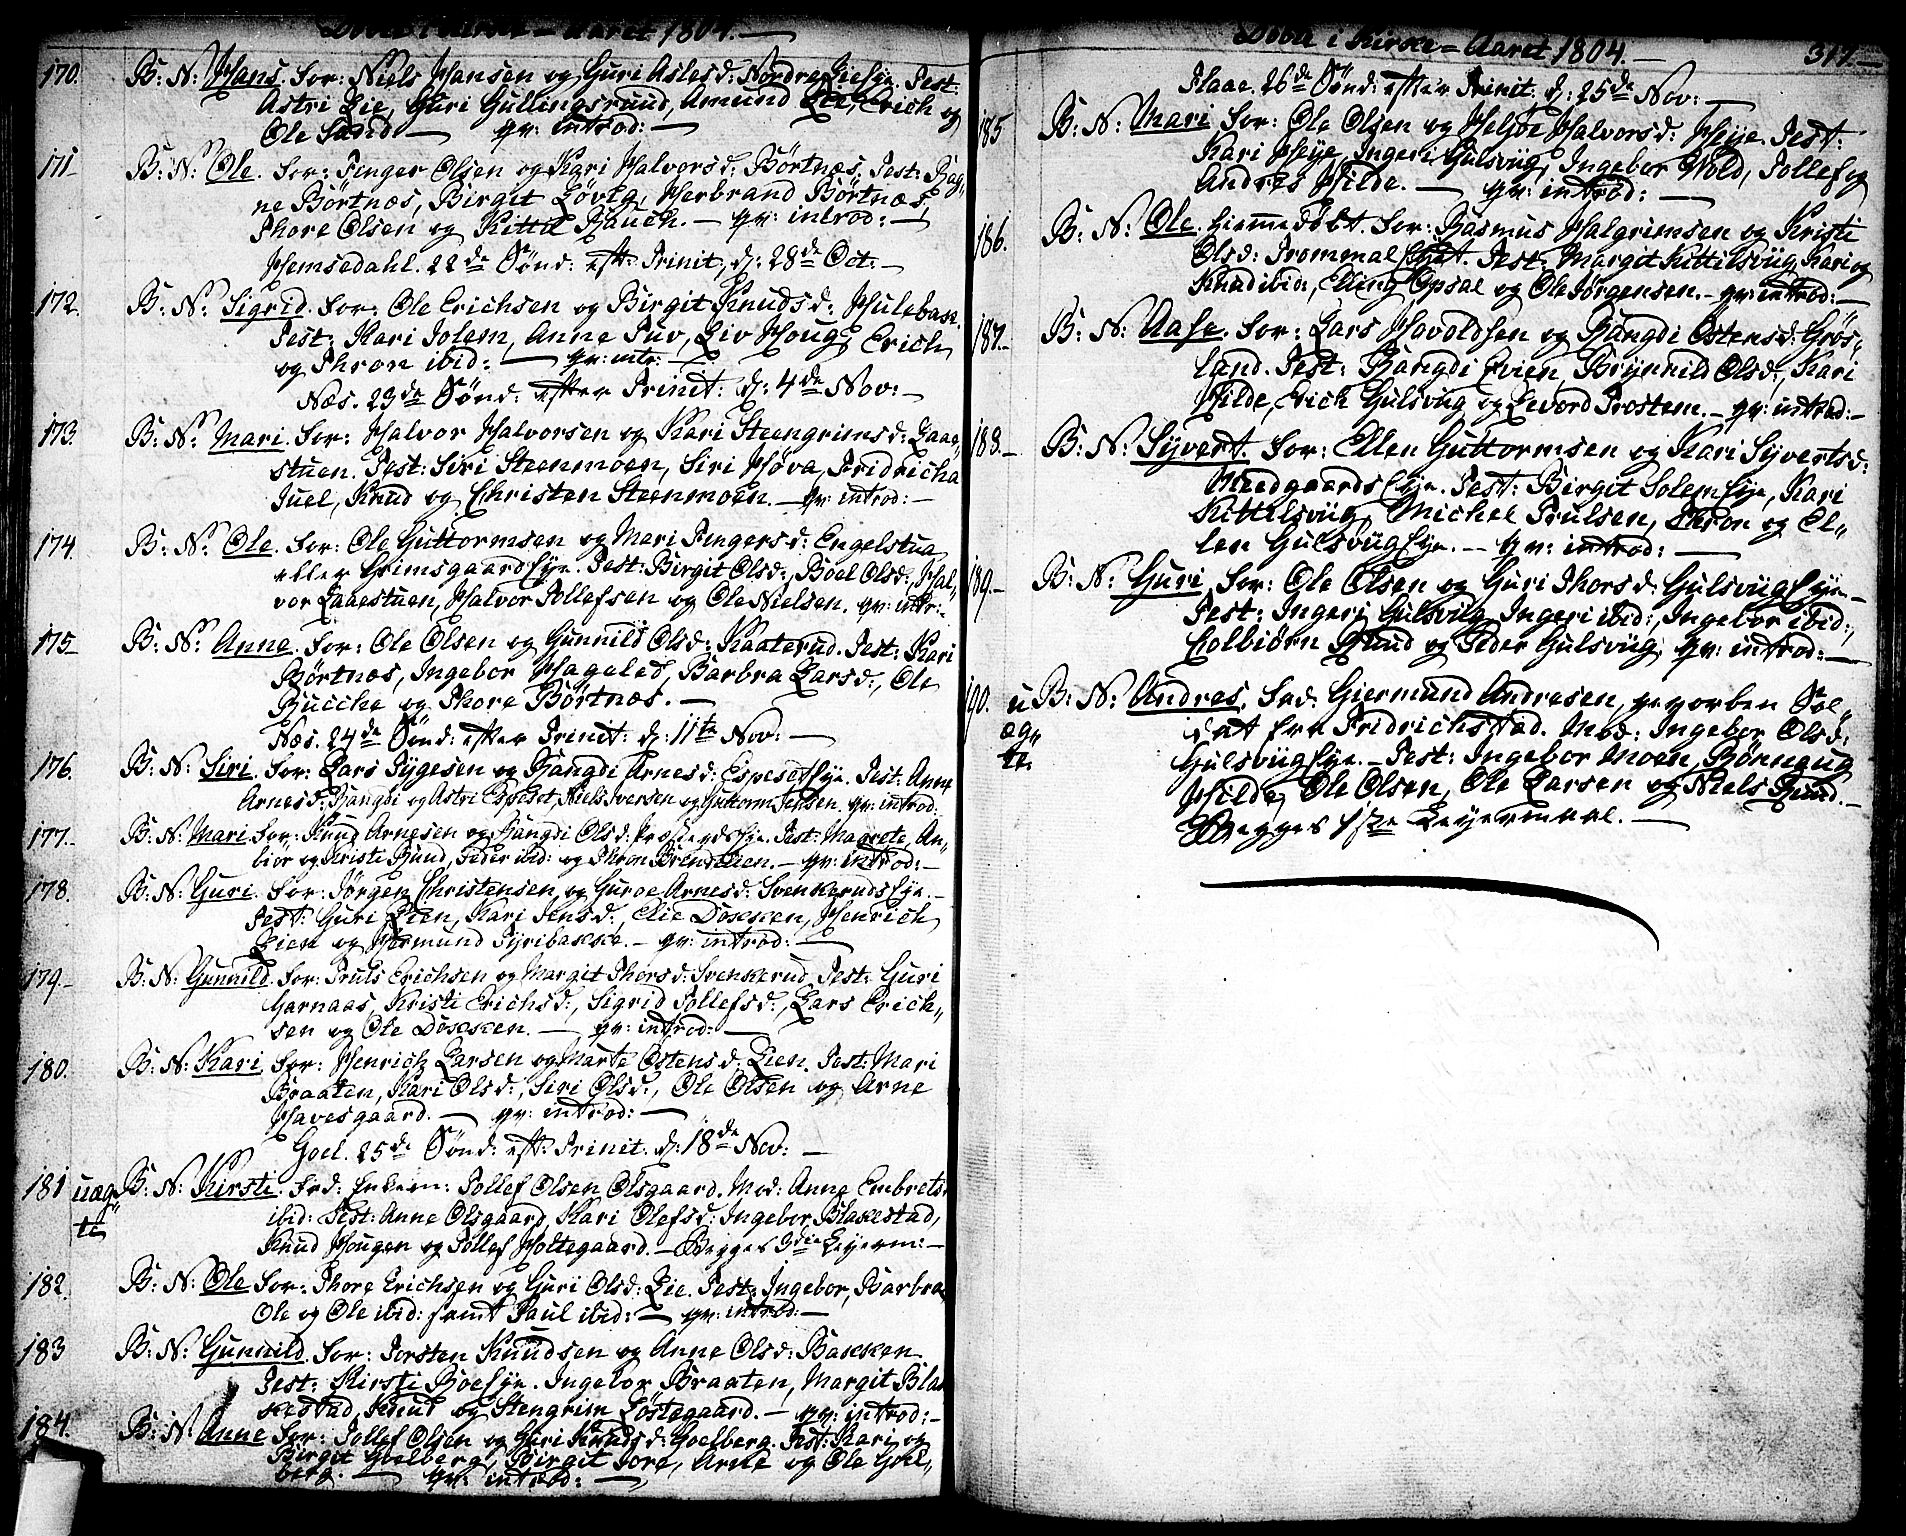 Døbte i Kirke - Aaret 1804.
170. B: N: Hans. For: Niels Hansen og Guri Aslesd: Nordre Lie Eye. Test:
Astri Lie, Guri Gullingsruud, Amund Lie, Erich og
Ole ibid. — qv: introd: —
171 B: N: Ole. For: Finger Olsen og Kari Halvorsd: Børtnæs. Test: Rag„
ne Børtnæs, Birgit Løvlg, Herbrand Børtnæs,
Thore Olsen og Kittil Rauch. — qv: introd: —
Hemsedahl. 22de Sønd: eft: Trinit, d: 28de Oct: —
172. B: N: Sigrid. For: Ole Erichsen og Birgit Knudsd: Hulebak.
Test: Kari Solem, Anne Tuv, Liv Houg, Erich
og Thron ibid: — qv: intr: —
Næs. 23de Sønd: efter Trinit: d: 4de Nov: —
173. B: N: Mari. For: Halvor Halvorsen og Kari Steengrimsd: Laae„
stuen. Test: Siri Steenmoen, Siri Høva, Fridricha
Juel, Knud og Christen Steenmoen. — qv: introd: —
174 B: N: Ole. For: Ole Guttormsen og Mari Fingersd: Engelstua
eller Grimsgaard Eye. Test: Birgit Olsd:, Boel Olsd:, Hal„
vor Laaestuen, Halvor Tollefsen og Ole Nielsen. qv: intr: —
175 B: N: Anne. For: Ole Olsen og Gunnild Olsd: Kaaterud. Test: Kari
Børtnæs, Ingebor Hageled, Barbra Larsd:, Ole
Bucche og Thore Børtnæs. —
Næs. 24de Sønd: efter Trinit: d: 11te Nov: —
176. B: N: Siri. For: Lars Tygesen og Rangdi Arnesd: Espeset Eye. Test: Anne
Arnesd: Rangdi og Astri Espeset, Niels Iversen og Guttorm Jensen. qv: introd:
177. B: N: Mari. For: Knud Arnesen og Rangdi Olsd: Eye. Test: Magrete, An„
bior og Kristi Rund, Peder ibid: og Thron Brendelien. — qv: introd: —
178. B: N: Guri. For: Jørgen Christensen og Guroe Arnesd: Svenkerud Eye. —
Test: Guri Lien, Kari Jensd:, Elie Dokken, Henrich
Lien og Hermund Tyribakke. — qv: introd: —
179. B: N: Gunnild. For: Truls Erichsen og Margit Thorsd: Svenkerud. Test: Guri
Garnaas, Kristi Erichsd:, Sigrid Tollefsd:, Lars Erich„
sen og Ole Dokken. — qv: introd: —
180. B: N: Kari. For: Henrich Larsen og Marte Østensd: Lien. Test: Mari
Braaten, Kari Olsd:, Siri Olsd:, Ole Olsen og Arne
Havesgaard. — qv: introd: —
Goel. 25de Sønd: eft: Trinit. d: 18de Nov: —
181 uæg„ B: N: Kirsti. Fad: Enkem: Tollef Olsen Olsgaard. Mod: Anne Embretsd
te ibid: Test: Anne Olsgaard, Kari Olefsd: Ingebor Blakestad,
Knud Hougen og Tollef Holtegaard. — Begges 3die Leyerm: —
182. B: N: Ole For: Thore Erichsen og Guri Olsd: Lie. Test: Ingebor, Barbra,
Ole og Ole ibid: samt Paul ibid: — qv: introd: —
183 B: N: Gunnild. For: Torsten Knudsen og Anne Olsd: Bakken.
Test: Kirsti Roe Eye. Ingebor Braaten, Margit Bla
kestad, Knud og Stengrim Løstegaard. — qv: introd: —
184. B: N: Anne For: Tollef Olsen og Guri Knudsd: Goelberg. Test: Kari og
Birgit Goelberg, Birgit Tore, Arne og Ole Goel„
berg. — qv: introd: —
Døbte i Kirke - Aaret 1804. — 317. —
Flaae. 26de Sønd: efter Trinit: d: 25de Nov: —
185 B: N: Mari For: Ole Olsen og Heljøe Halvorsd: Heye. Test:
Kari Heye, Ingeri Gulsviig, Ingebor Wold, Tollef og
Andres Hilde. — qv: introd: —
186. B: N: Ole. hiemmedøbt. For: Rasmus Halgrimsen og Kristi
Olsd: Trommal Eyet. Test: Margit Kittilsviig, Kari og
Knud ibid:, Elling Opsal og Ole Jørgensen. — qv: introd: —
187. B: N: Aase. For: Lars Havoldsen og Rangdi Østensd: Grøs„
land. Test: Rangdi Evien, Brynnild Olsd:, Kari
Hilde, Erich Gulsviig og Levord Trostem. — qv: introd: —
188. B: N: Syvert. For: Ellen Guttormsen og Kari Syvertsd:
Medgaards Eye. Test: Birgit Solem Eye, Kari
Kittilsviig, Michel Trulsen, Thron og El„
len Gulsviig Eye. — qv: introd: —
189. B: N: Guri For: Ole Olsen og Guri Thorsd: Gulsviig Eye —
Test: Ingeri Gulsviig, Ingeri ibid:, Ingebor ibid:,
Colbiørn Rund og Peder Gulsviig. qv: introd: —
190. u B: N: Andras, Fad: Giermund Andresen, geworben Sol„
æg„ dat fra Fridrichstad. Mod: Ingebor Olsd:
te. Gulsviig Eye. — Test: Ingebor Moen, Rønnaug
Hilde, Ole Olsen, Ole Larsen og Niels Rund. —
Begges 1ste Leyermaal. —